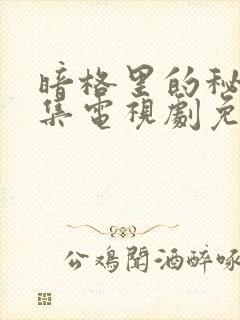 暗格里的秘
集電視劇免
公鸡聞酒醉啄